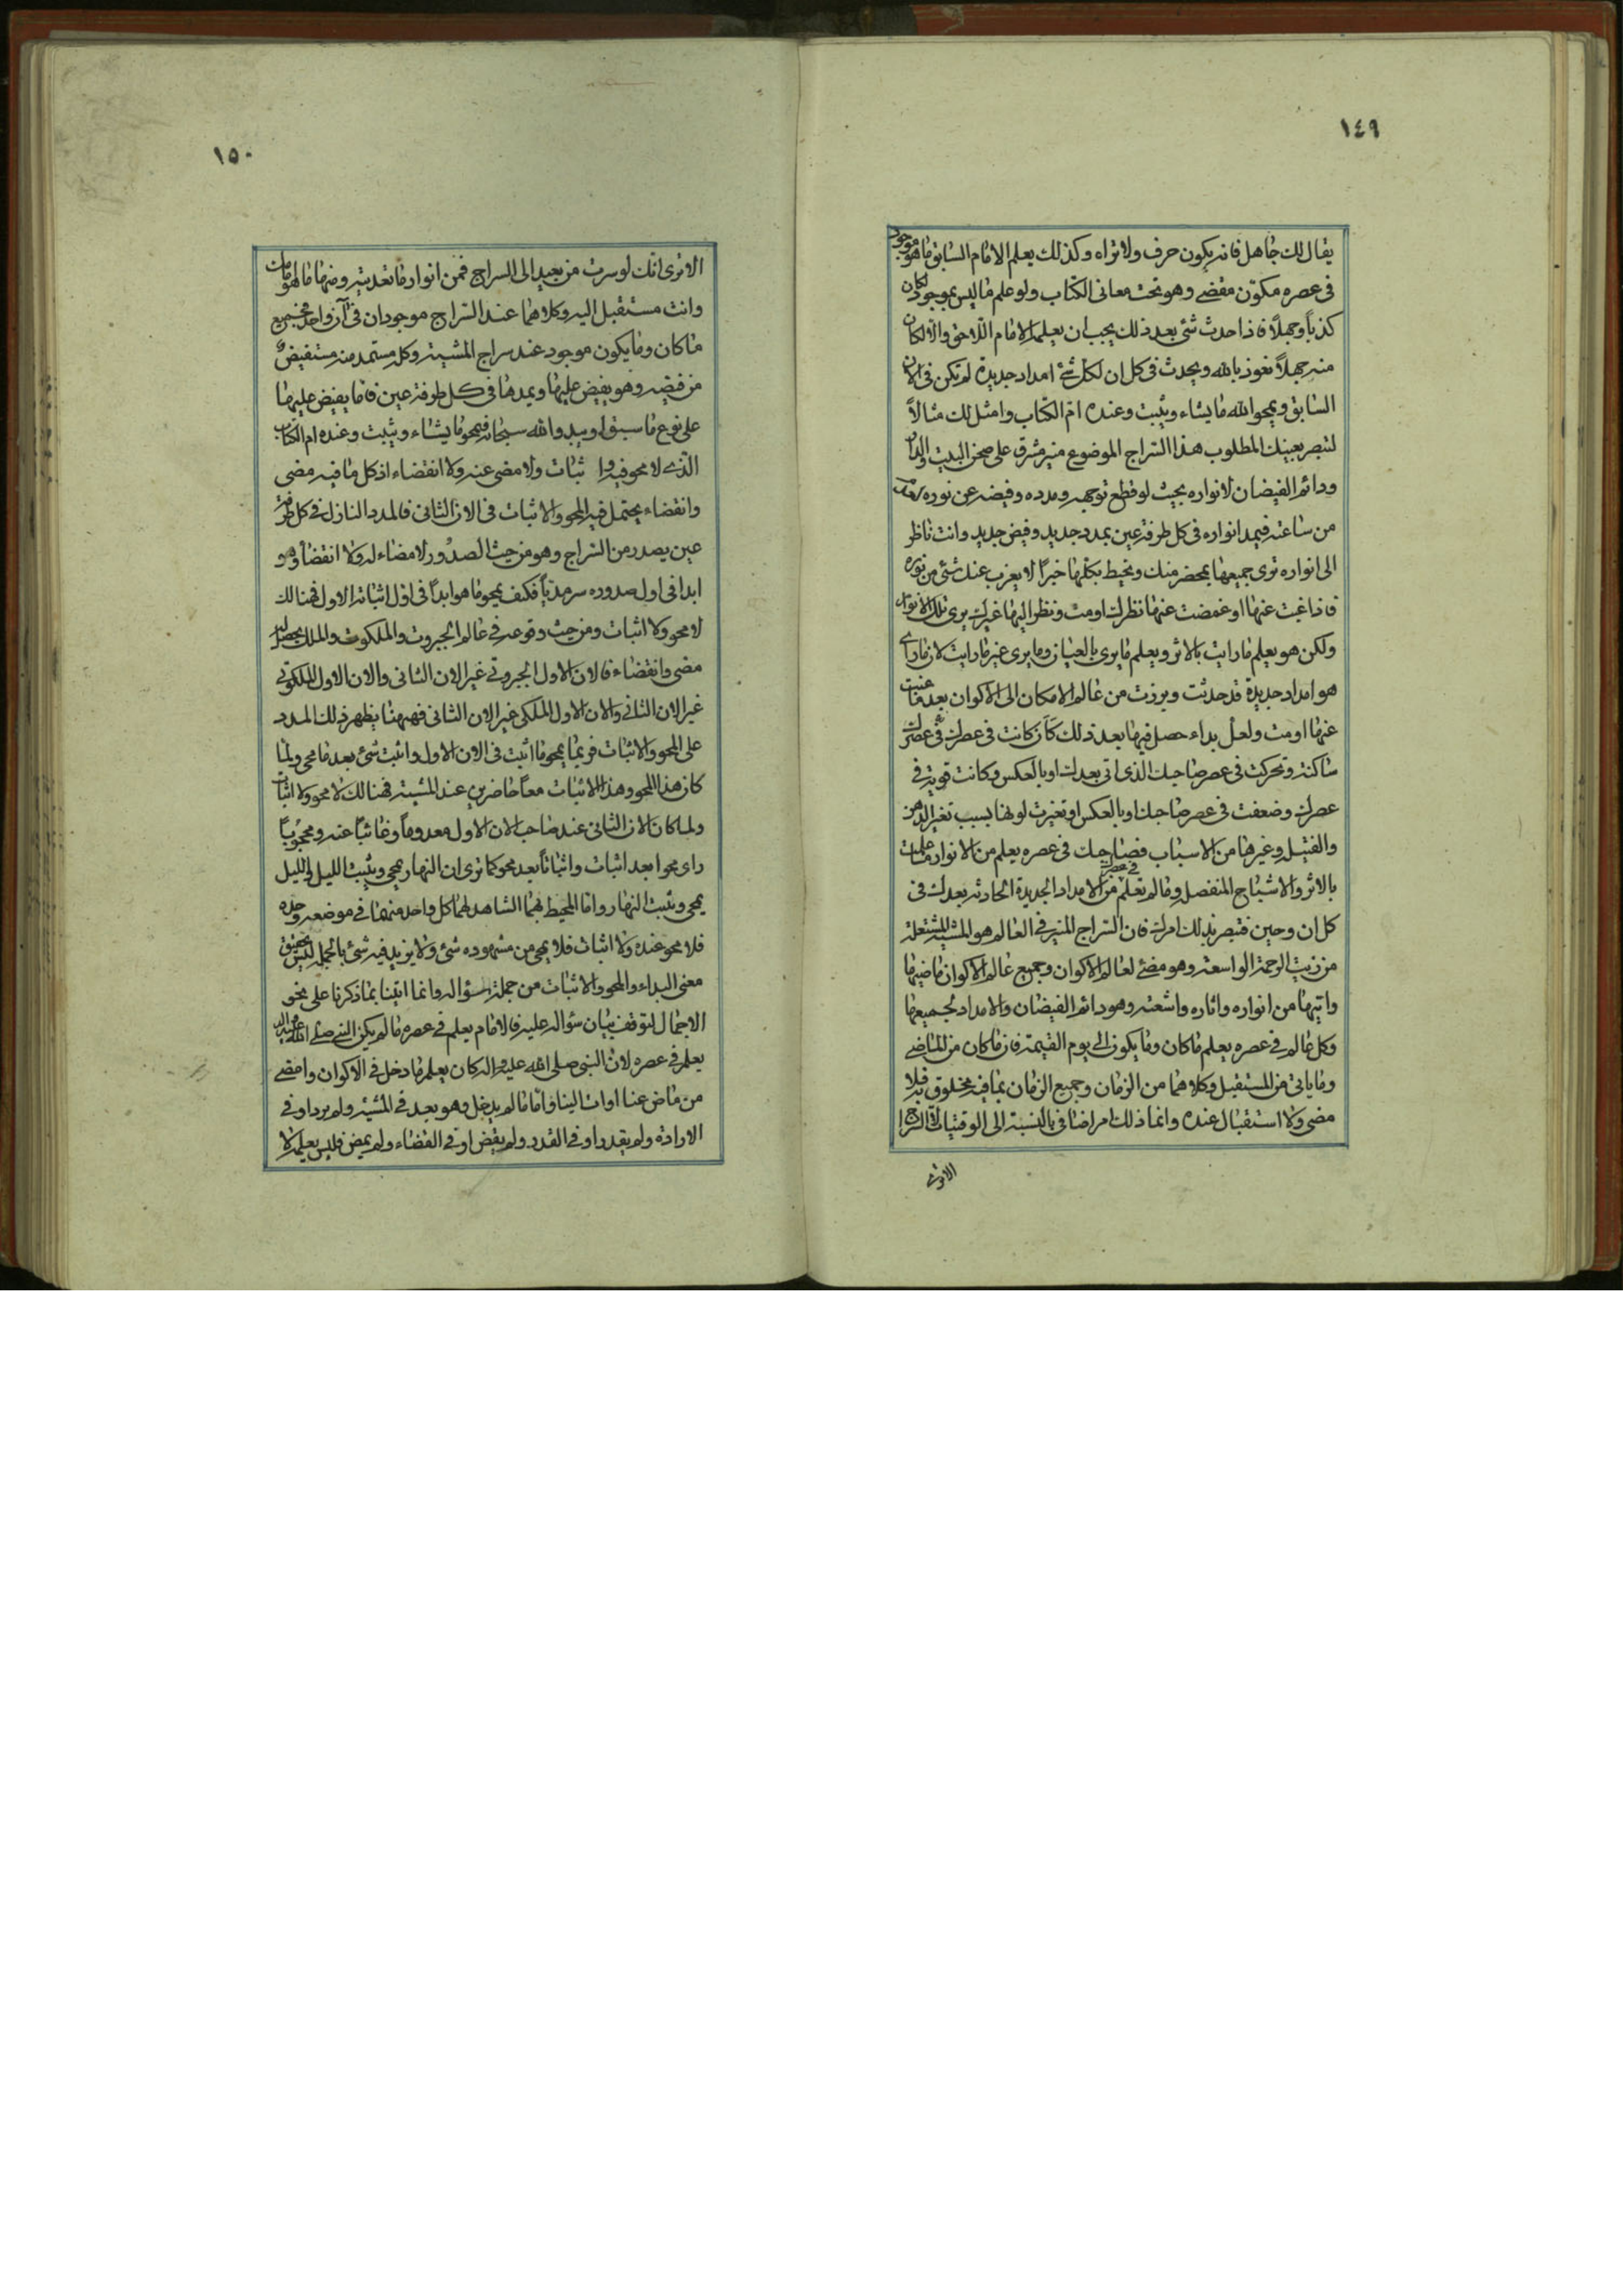 ١٤٩
يقال لك جاهل فانه يكون حرف ولا تراه وكذلك يعلم الامام السابق ما هو موجود
في عصره مكوّن مقضي وهو تحت معاني الكتاب ولو علم ما ليس بموجود لكان
كذباً وجهلاً فاذا حدث شئ بعد ذلك يجب ان يعلمه الامام اللاحق والا لكان
منه جهلاً نعوذ بالله ويحدث في كل ان لكل شئ امداد جديدة لم تكن في الان
السابق ويمحو الله ما يشاء ويثبت وعنده ام الكتاب وامثل لك مثالاً
لتبصر بعينك المطلوب هذا السراج الموضوع منير مشرق على صحن البيت والدار
ودائم الفيضان لانواره بحيث لو قطع توجهه ومدده وفيضه عن نوره
من ساعته فيمد انواره في كل طرفة عين بمدد جديد وفيض جديد وانت ناظر
الى انواره ترى جميعها بمحضر منك وتحيط بكلها خبراً لا يعزب عنك شئ من نوره
فاذا غبت عنها او غمضت عنها نظرك او مت ونظر اليها غيرك يرى تلك الانوار
ولكن هو يعلم ما رايت بالاثر ويعلم ما يرى بالعيان وما يرى غير ما رايت لان ما راى
هو امداد جديدة قد حدثت وبرزت من عالم الامكان الى الاكوان بعد ما غبت
عنها او مت ولعل بداء حصل فيها بعد ذلك كان كانت في عصرك
ساكنة وتحركت في عصر صاحبك الذي اتى بعدك او بالعكس وكانت قوية في
عصرك وضعفت في عصر صاحبك او بالعكس او تغيرت لونها بسبب تغير الدهن
والفتيل وغيرها من الاسباب فصاحبك في عصره يعلم من الانوار ما علمت
بالاثر والاشباح المنفصل وما لم تعلم في عصرك من الامداد الجديدة الحادثة بعدك في
كل ان وحين فتبصر بذلك امرك فان السراج المنير في العالم هو المشية المشتعلة
من زيت الرحمة الواسعة وهو مضئ لعالم الاكوان وجميع عالم الاكوان ماضيها
واتيها من انواره واثاره واشعته وهو دائم الفيضان والامداد لجميعها
وكل عالم في عصره يعلم ما كان وما يكون الى يوم القيمة فان ما كان من الماضي
وما ياتي من المستقبل وكلاهما من الزمان وجميع الزمان بما فيه مخلوق به فلا
مضي ولا استقبال عنده وانما ذلك امر اضافي بالنسبة الى الوقتيات
الا ترى
١٥٠
الا ترى انك لو سرت من بعيد الى السراج فمن انواره ما تعديته ومنها ما هو ات
وانت مستقبل اليه وكلاهما عند السراج موجودان في آن واحد فجميع
ما كان وما يكون موجود عند سراج المشية وكل مستمد منه مستفيض
من فيضه وهو يفيض عليها ويمدها في كل طرفة عين فاما يفيض عليها
على نوع ما سبق او يبدو الله سبحانه فيمحو ما يشاء ويثبت وعنده ام الكتاب
الذي لا محو فيه ولا اثبات ولا مضي عنه ولا انقضاء اذ كل ما فيه مضي
وانقضاء يحتمل فيه المحو والاثبات في الان الثاني فالمدد النازل في كل طرفة
عين يصدر من السراج وهو من حيث الصدور لا مضاء له ولا انقضاء وهو
ابدا في اول صدوره سرمدياً فكيف يمحو ما هو ابداً في اول اثباته الاول فهنالك
لا محو ولا اثبات ومن حيث وقوعه في عالم الجبروت والملكوت والملك يحصل له
مضي وانقضاء فالان الاول الجبروتي غير الان الثاني والان الاول الملكوتي
غير الان الثاني والان الاول الملكي غير الان الثاني فهيهنا يظهر ذلك المدد
على المحو والاثبات فربما يمحو ما اثبت في الان الاول واثبت شئ بعد ما محي ولما
كان هذا المحو وهذا الاثبات معاً حاضرين عند المشية فهنالك لا محو ولا اثبات
ولما كان الان الثاني عند صاحب الان الاول معدوماً وغائباً عنه ومحجوباً
راى محوا بعد اثبات واثباتاً بعد محو كما ترى ان النهار يمحي ويثبت الليل والليل
يمحي ويثبت النهار واما المحيط بهما الشاهد لهما كل واحد منهما في موضعه وحده
فلا محو عنده ولا اثبات فلا يمحي من مشهوده شئ ولا يزيد فيه شئ بالجملة ليس تحقيق
معنى البداء والمحو والاثبات من جملة سؤاله وانما اتينا بما ذكرنا على نحو
الاجمال لتوقف بيان سؤاله عليه فالامام يعلم في عصره ما لم يكن النبي صلى الله عليه واله
يعلم في عصره لان النبي صلى الله عليه واله كان يعلم ما دخل في الاكوان وامضي
من ماض عنا او ات الينا واما ما لم يدخل وهو بعد في المشية ولم يرد او في
الارادة ولم يقدر او في القدر ولم يقض او في القضاء ولم يمض فليس يعلمه الا